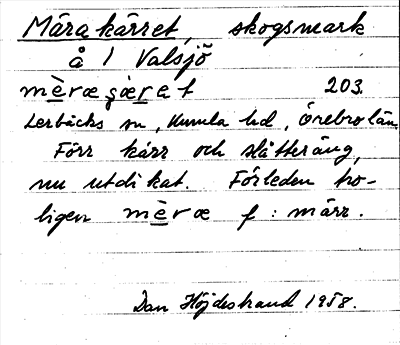 Märakärret, skogsmark
å 1 Valsjö
mèræɕæret 203.
Lerbäcks sn, Kumla hd, Örebro län
Förr kärr och slåtteräng,
nu utdikat. Förleden tro-
ligen mèræ f: märr.
Dan Höjdestrand 1958.